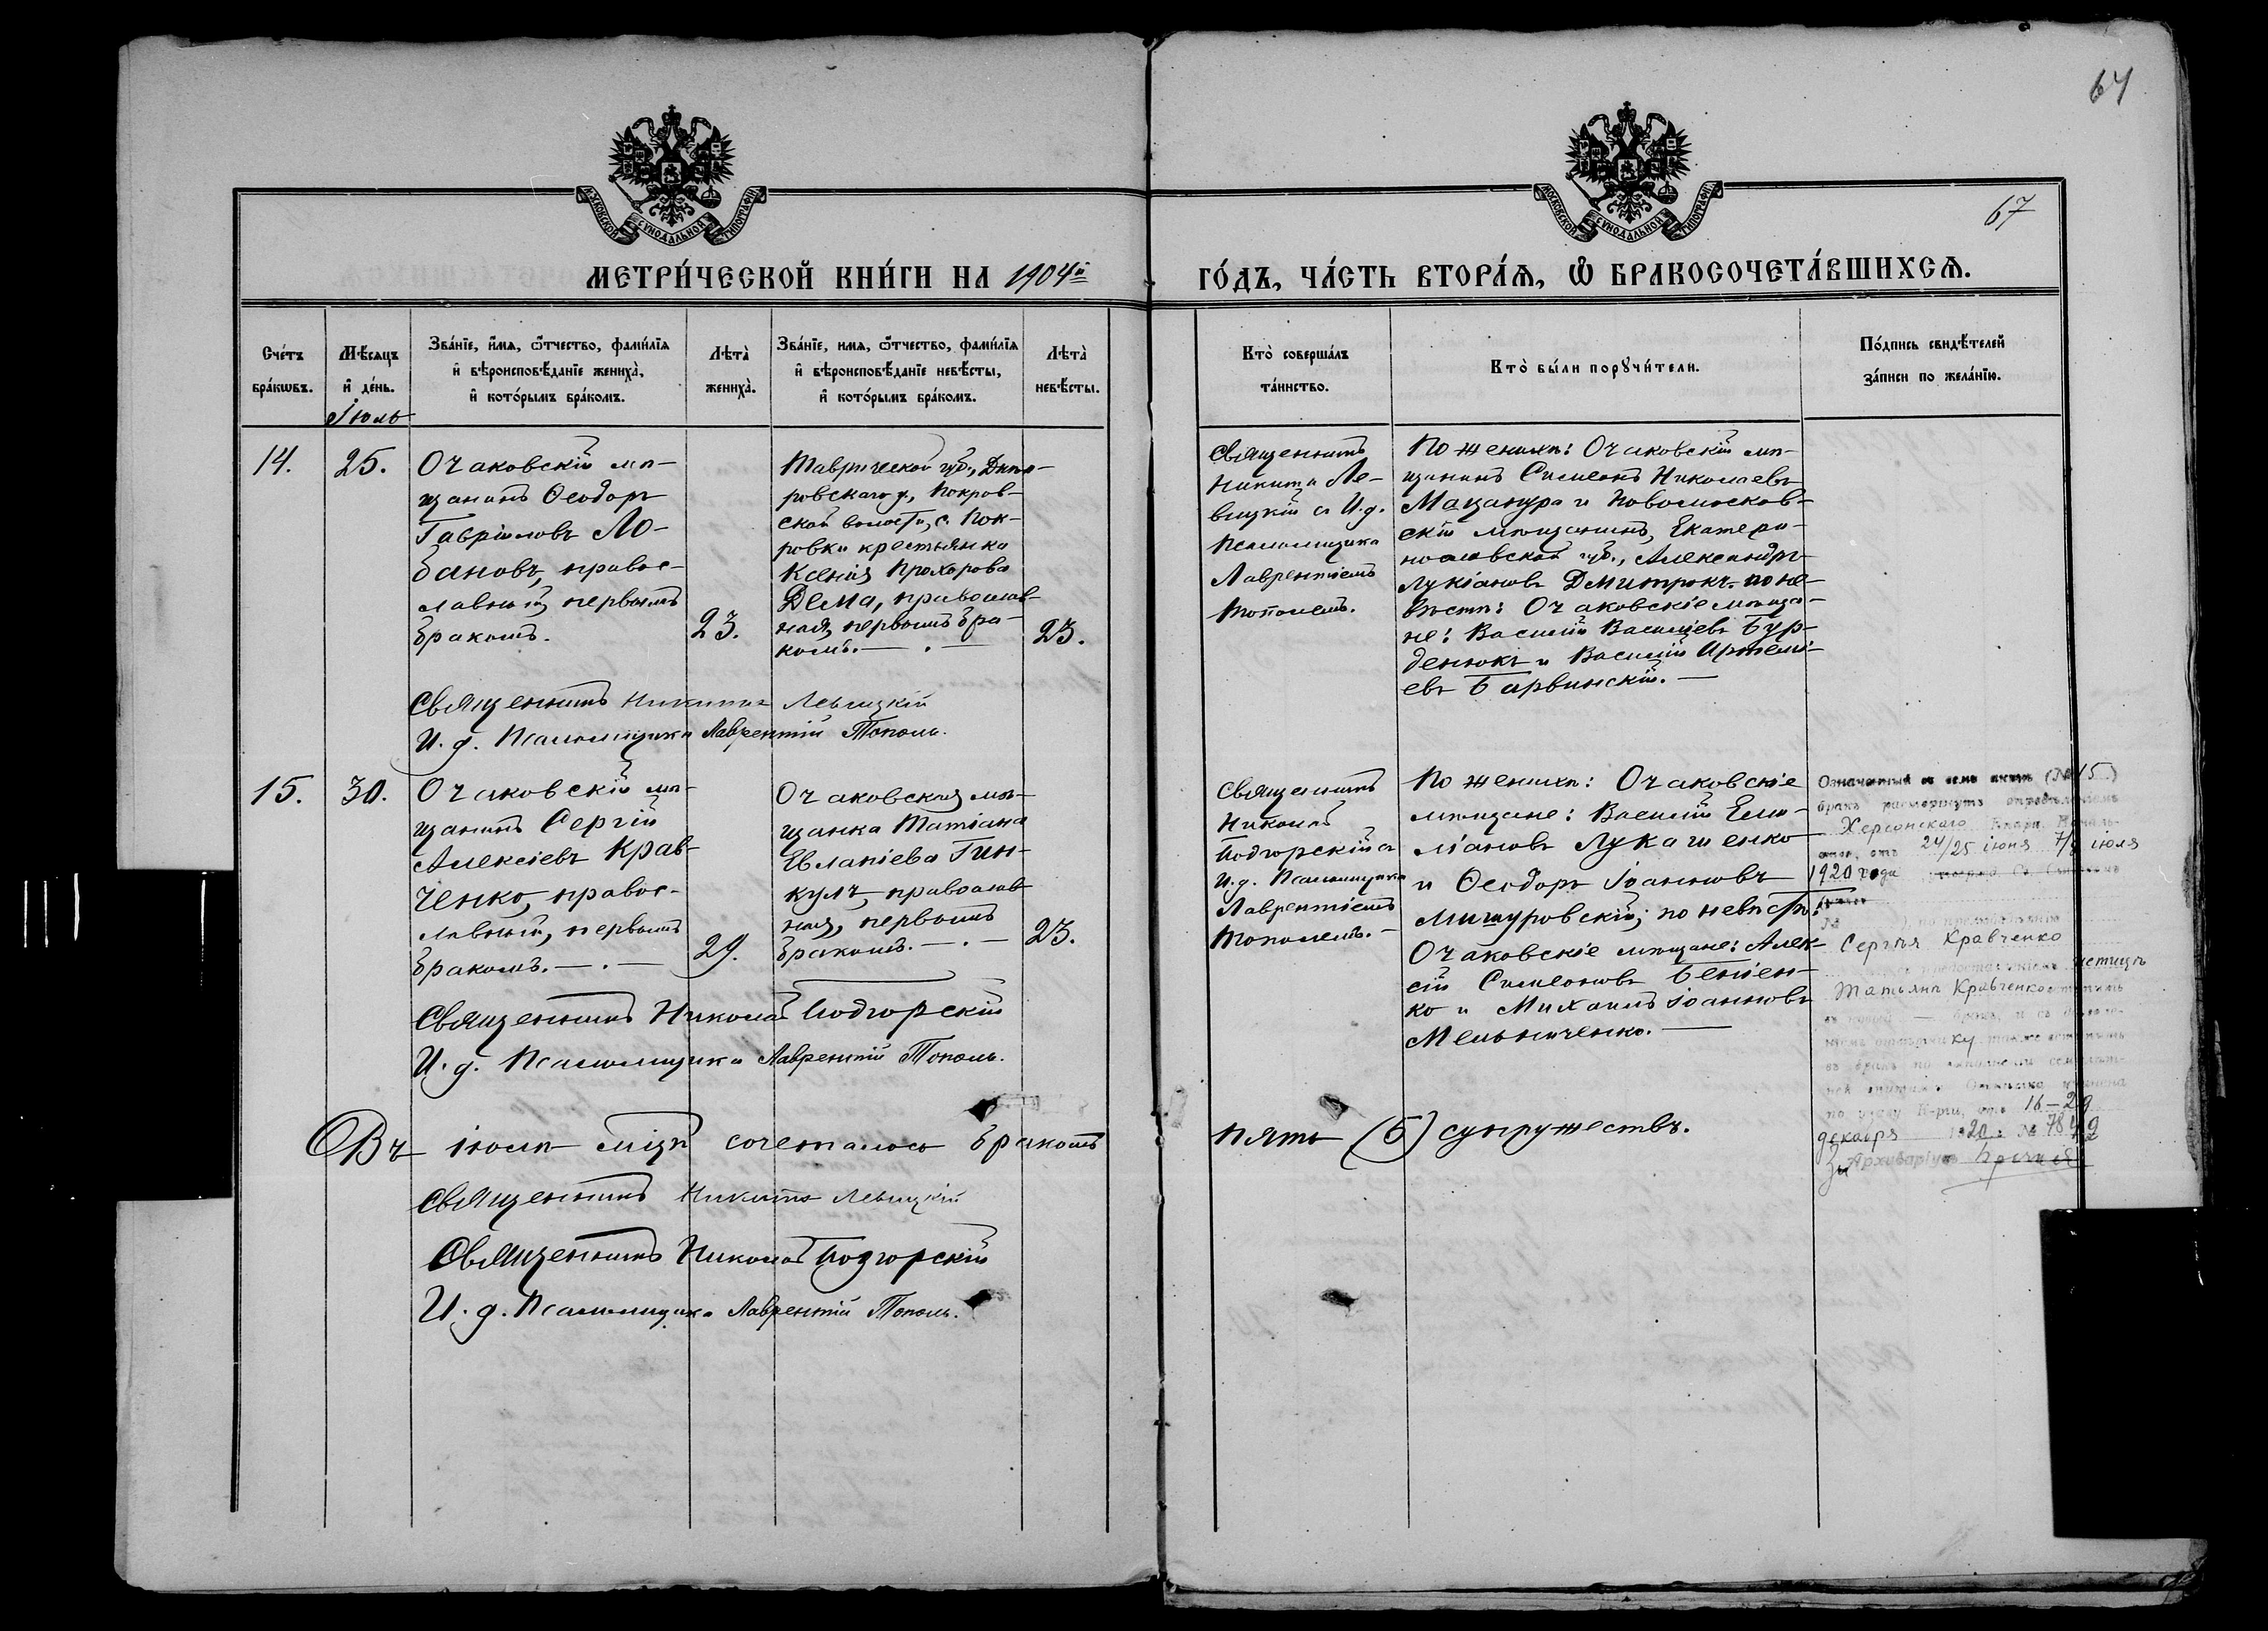 64
67
МОСКОВСКОЙ СѴНОДАЛЬНОЙ ТИПОГРАФІИ
МОСКОВСКОЙ СѴНОДАЛЬНОЙ ТИПОГРАФІИ
МЕТРИ́ЧЕСКОЙ КНИ́ГИ НА 1904й
ГО́ДЪ, ЧА́СТЬ ВТОРА́Ѧ, Ѽ БРАКОСОЧЕТА́ВШИХСѦ.
Сче́тъ бра́кѡвъ.
Мѣ́сяцъ и҆ де́нь.
Зва́нїе, и҆́мя, ѻ҆́тчество, фами́лїя
и҆ вѣроисповѣ́данїе жениха̀,
и҆ кото́рымъ бра́комъ.
Лѣта̀ жениха̀.
Зва́нїе, и҆́мя, ѻ҆́тчество, фами́лїя
и҆ вѣроисповѣ́данїе невѣ́сты,
и҆ кото́рымъ бра́комъ.
Лѣта̀ невѣ́сты.
Кто̀ соверша́лъ
та́инство.
Кто̀ бы́ли порꙋчи́тели.
По́дпись свидѣ́телей
за́писи по жела́нїю.
Іюль
14.
25.
Очаковскій мѣ-
щанинъ Ѳеодоръ
Гавріиловъ Ло-
бановъ, правос-
лавный, первымъ
бракомъ.
23.
Таврической губ., Днѣп-
ровскаго у., Покров-
ской волости, с. Пок-
ровки крестьянка
Ксенія Прохорова
Дема, православ-
ная, первымъ бра-
комъ. — . —
23.
Священникъ
Никита Ле-
вицкій с И.д.
Псаломщика
Лаврентіемъ
Тополемъ.
По женихѣ: Очаковскій мѣ-
щанинъ Симеонъ Николаевъ
Мацанура и Новомосков-
скій мѣщанинъ, Екатери-
нославской губ., Александръ
Лукіановъ Дмитрокъ. по не-
вѣстѣ: Очаковскіе мѣща-
не: Василій Васильевъ Бур-
денюкъ и Василій Артемі-
евъ Барвинскій. —
Священникъ Никита Левицкій
И. д. Псаломщика Лаврентій Тополь.
15.
30.
Очаковскій мѣ-
щанинъ Сергій
Алексіевъ Крав-
ченко, правос-
лавный, первымъ
бракомъ. — . —
29.
Очаковская мѣ-
щанка Татіана
Евлапіева Гин-
кулъ, православ-
ная, первымъ
бракомъ. — . —
23.
Священникъ
Николай
Подгорскій съ
И.д. Псаломщика
Лаврентіемъ
Тополемъ. —
По женихѣ: Очаковскіе
мѣщане: Василій Емил-
ліановъ Лукашенко
и Ѳеодоръ Іоанновъ
Мишуровскій; по невѣстѣ:
Очаковскіе мѣщане: Алек-
сій Симеоновъ Бенiен-
ко и Михаилъ Іоанновъ
Мельниченко. —
Означенный въ семъ актѣ (№ 15)
бракъ расторгнутъ опредѣленіемъ
Херсонскаго
отъ 24/25 іюня 7/8 іюля
1920 года
Сергѣя Кравченко
истицѣ
Татьянѣ Кравченко
16–29
декабря 1920 № 7849
За Архиваріуса
Священникъ Николай Подгорскій
И. д. Псаломщика Лаврентій Тополь.
Въ іюлѣ мѣцѣ сочеталось бракомъ пять (5) супружествъ.
Священникъ Никита Левицкій
Священникъ Николай Подгорскій
И. д. Псаломщика Лаврентій Тополь.